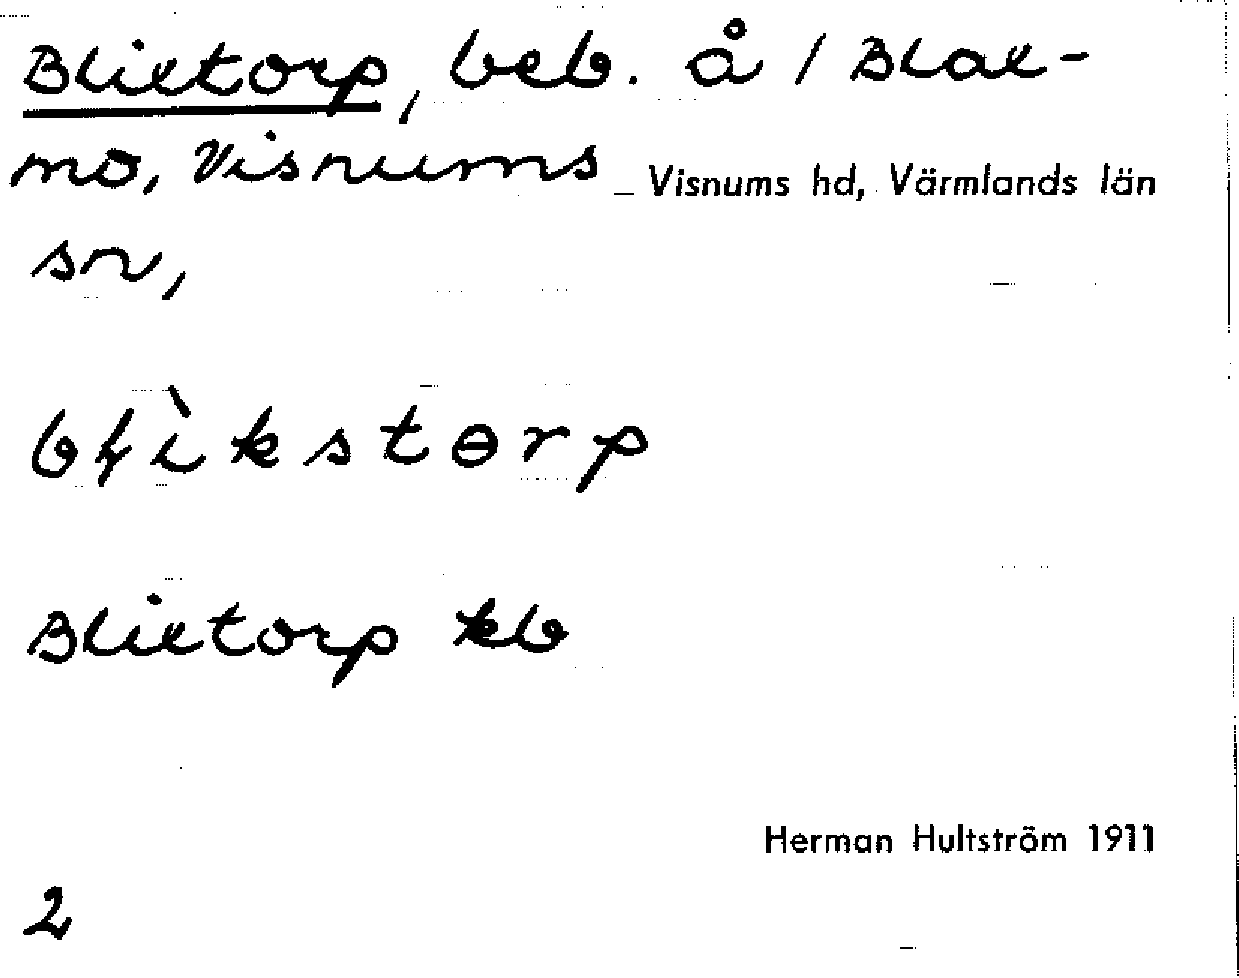 Blixtorp, beb. å / Blax-
mo, Visnums Visnums hd, Värmlands län
sn,
bɬìkstɵrp
Blixtorp kb
Herman Hultström 1911
2